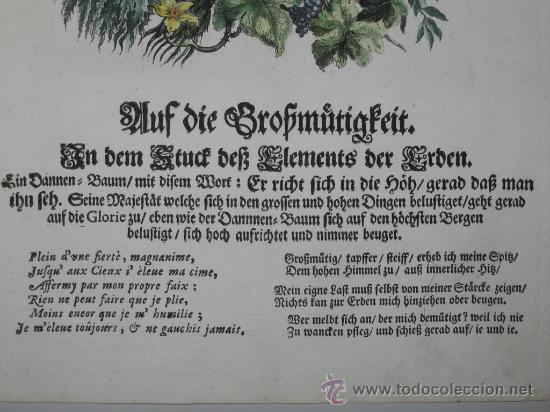 Auf die Großmütigkeit.
In dem Stuck deß Elements der Erden.
Ein Dannen-Baum/ mit disem Wort: Er richt sich in die Höh/ gerad daß man
ihn seh. Seine Majestät welche sich in den grossen und hohen Dingen belustiget/ geht gerad
auf die Glorie zu/ eben wie der Dannnen-Baum sich auf den höchsten Bergen
belustigt/ sich hoch aufrichtet und nimmer beuget.
Plein d'vne fierté, magnanime,
Jusqu' aux Cieux s' éleue ma cime,
Affermy par mon propre faix:
Rien ne peut faire que je plie,
Moins encor que je m' humilie;
Je m'éleue toûjoiers, & ne gauchis jamais.
Großmütig/ tapffer/ steiff/ erheb ich meine Spitz/
Dem hohen Himmel zu/ auß innerlicher Hitz/
Mein eigne Last muß selbst von meiner Stärcke zeigen/
Nichts kan zur Erden mich hinziehen oder beugen.
Wer meldt sich an/ der mich demütigt? weil ich nie
Zu wancken pfleg/ und schieß gerad auf/ ie und ie.
todocoleccion
www.todocoleccion.net